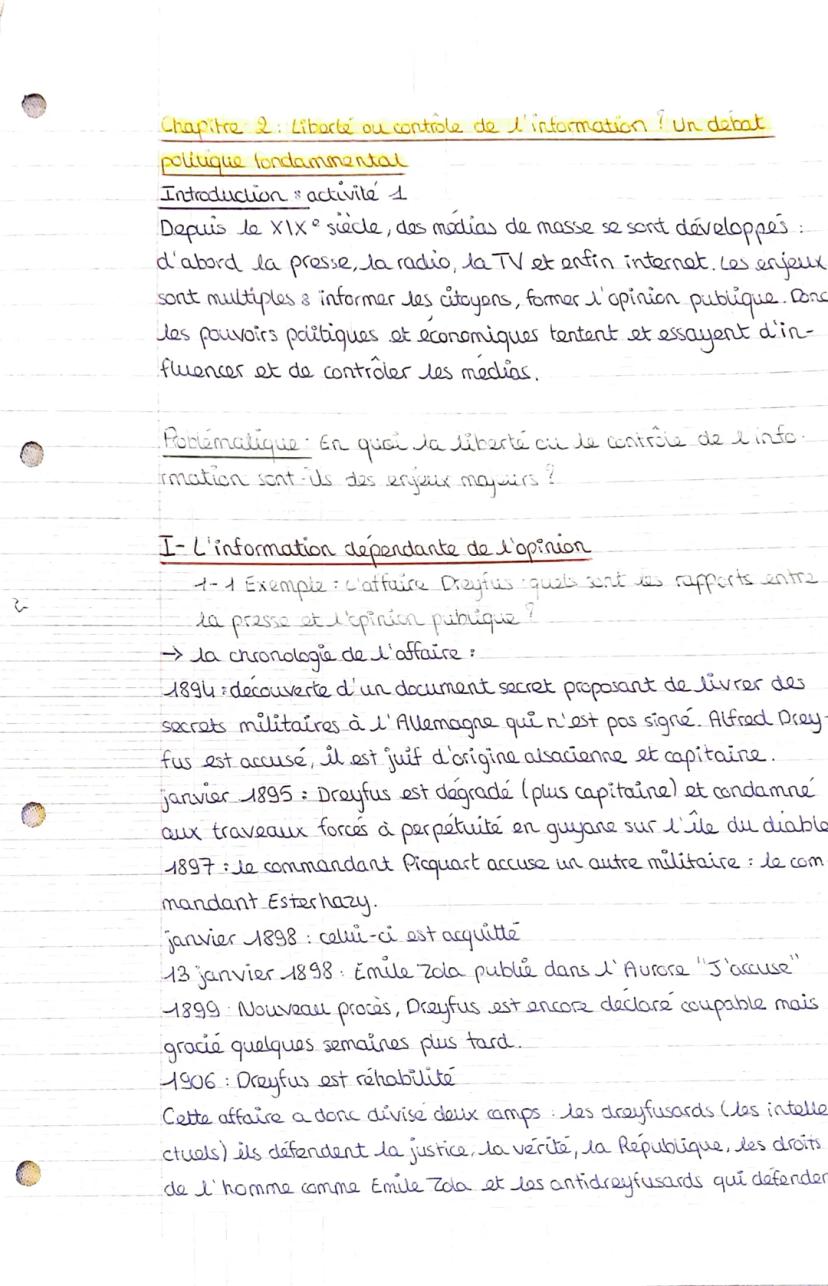 Chapitre 2 : Liberté ou contrôle de l'information ? Un débat
politique fondammental
Introduction : activité 1
Depuis le XIXe siècle, des médias de masse se sont développés :
d'abord la presse, la radio, la TV et enfin internet. Les enjeux
sont multiples : informer les citoyens, former l'opinion publique. Donc
les pouvoirs politiques et économiques tentent et essayent d'in-
fluencer et de contrôler les médias.
Problématique : En quoi la liberté ou le contrôle de l'info-
rmation sont-ils des enjeux majeurs ?
I- L'information dépendante de l'opinion
1-1 Exemple : L'affaire Dreyfus : quels sont les rapports entre
la presse et l'opinion publique ?
→ la chronologie de l'affaire :
1894 : découverte d'un document secret proposant de livrer des
secrets militaires à l'Allemagne qui n'est pas signé. Alfred Drey-
fus est accusé, il est juif d'origine alsacienne et capitaine.
janvier 1895 : Dreyfus est dégradé (plus capitaine) et condamné
aux traveaux forcés à perpétuité en guyane sur l'île du diable
1897 : le commandant Picquart accuse un autre militaire : le com
mandant Esterhazy.
janvier 1898 : celui-ci est acquitté
13 janvier 1898 : Emile Zola publie dans l'Aurore "J'accuse"
1899 : Nouveau procès, Dreyfus est encore déclaré coupable mais
gracié quelques semaines plus tard.
1906 : Dreyfus est réhabilité
Cette affaire a donc divisé deux camps : les dreyfusards (les intelle
ctuels) ils défendent la justice, la vérité, la République, les droits
de l'homme comme Emile Zola et les antidreyfusards qui défender